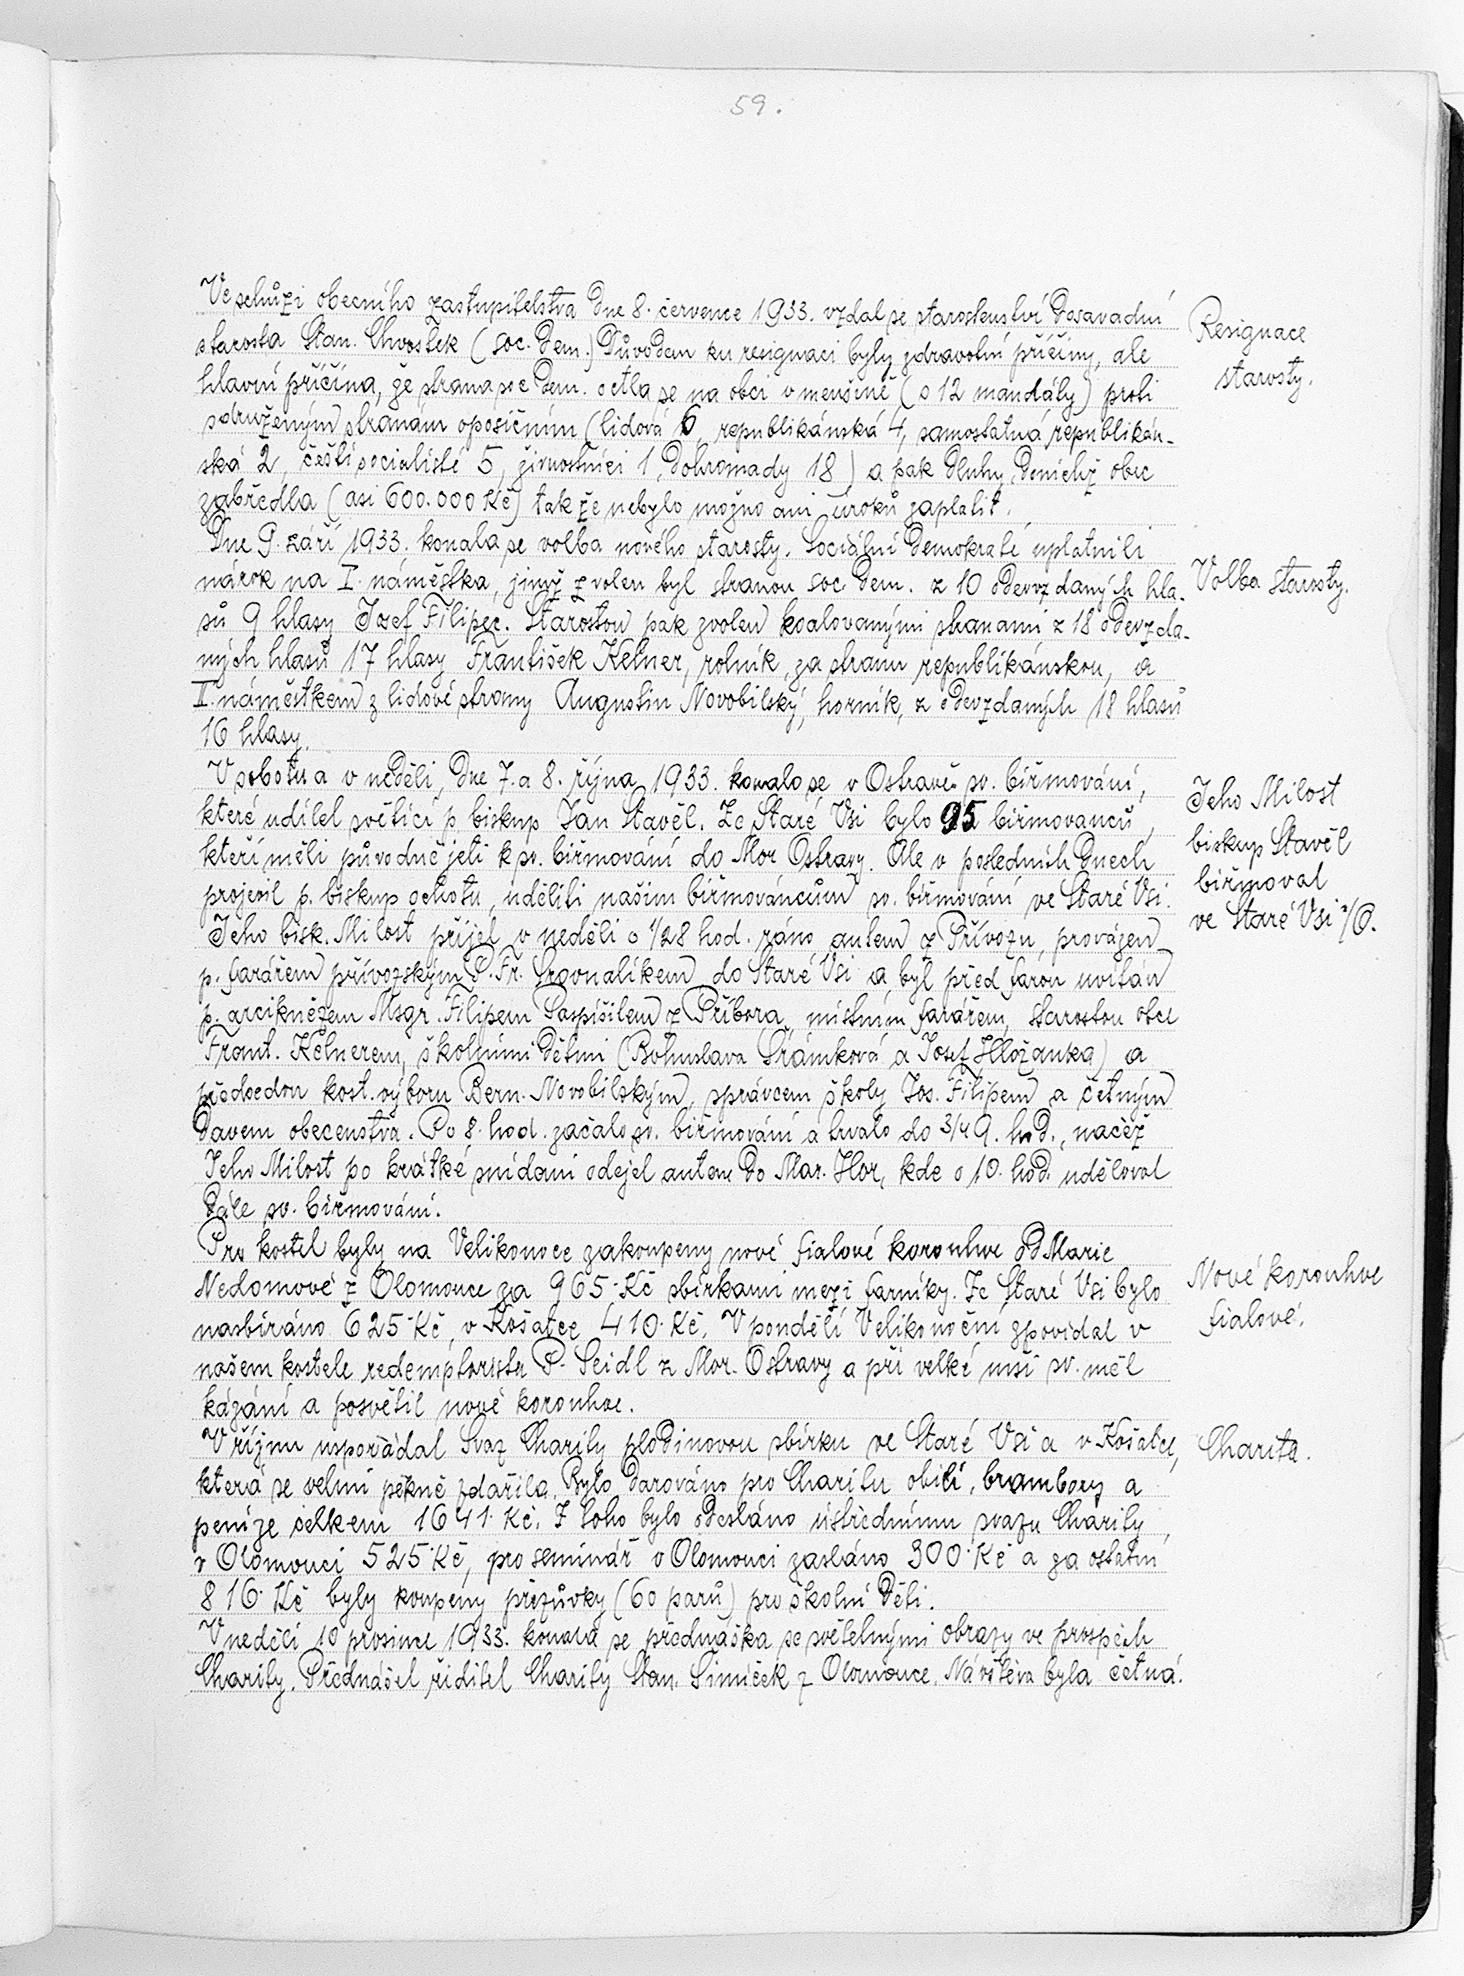 59.
Ve schůzi obecního zastupitelstva dne 8. července 1933. vzdal se starostenství dosavadní
starosta Stan. Chvostek (soc. dem.) Důvodem ku resignaci byly zdravotní příčiny, ale
hlavní příčina, že strana soc dem. octla se na obci v menšině (o 12 mandály) proti
sdruženým stranám oposičním (lidová 6, republikánská 4, samostatná republikán-
ská 2, čeští socialisté 5, živnostníci 1, dohromady 18) a pak dluhy, do nichž obec
zabředla (asi 600.000 Kč) tak že nebylo možno ani úroků zaplatit.
Resignace
starosty.
Dne 9. září 1933. konala se volba nového starosty. Sociální demokraté uplatnili
nárok na I. náměstka, jimž zvolen byl stranou soc. dem. z 10 odevzdaných hla-
sů 9 hlasy Josef Filipec. Starostou pak zvolen koalovanými stranami z 18 odevzda-
ných hlasů 17 hlasy František Kelner, rolník, za stranu republikánskou, a
II. náměstkem z lidové strany Augustin Novobilský, horník, z odevzdaných 18 hlasů
16 hlasy.
Volba starosty.
V sobotu a v neděli, dne 7. a 8. října 1933. konalo se v Ostravě sv. biřmování,
které udílel světící p. biskup Jan Stavěl. Ze Staré Vsi bylo 95 biřmovanců,
kteří měli původně jeti k sv. biřmování do Mor Ostravy. Ale v posledních dnech
projevil p. biskup ochotu, uděliti našim biřmovancům sv. biřmování ve Staré Vsi.
Jeho bisk. Milost přijel v neděli o 1/28 hod. ráno autem z Přívozu, provázen
p. farářem přívozským P. Fr. Srovnalíkem do Staré Vsi a byl před farou uvítán
p. arciknězem Msgr. Filipem Pospíšilem z Příbora, místním farářem, starostou obce
Frant. Kelnerem, školními dětmi (Bohuslava Šrámková a Josef Hložanka) a
předsedou kost. výboru Bern. Novobilským, správcem školy Jos. Filipem a četným
davem obecenstva. Po 8. hod. začalo sv. biřmování a trvalo do 3/4 9. hod., načež
Jeho Milost po krátké snídani odejel autem do Mar. Hor, kde o 10. hod. uděloval
dále sv. biřmování.
Jeho Milost
biskup Stavěl
biřmoval
ve Staré Vsi n/O.
Pro kostel byly na Velikonoce zakoupeny nové fialové korouhve od Marie
Nedomové z Olomouce za 965 Kč sbírkami mezi farníky. Ze Staré Vsi bylo
nasbíráno 625 Kč, v Košatce 410 Kč. V pondělí Velikonoční zpovídal v
našem kostele redemptorista P. Seidl z Mor. Ostravy a při velké mši sv. měl
kázání a posvětil nové korouhve.
Nové korouhve
fialové.
V říjnu uspořádal Svaz Charity plodinovou sbírku ve Staré Vsi a v Košatce,
která se velmi pěkně zdařila. Bylo darováno pro Charitu obilí, brambory a
peníze celkem 1641 Kč. Z toho bylo odesláno ústřednímu svazu Charity
v Olomouci 525 Kč, pro seminář v Olomouci zasláno 300 Kč a za ostatní
816 Kč byly koupeny přezůvky (60 parů) pro školní děti.
Charita.
V neděli 10 prosince 1933. konala se přednáška se světelnými obrazy ve prospěch
Charity. Přednášel ředitel Charity Stan. Šimíček z Olomouce. Návštěva byla četná.